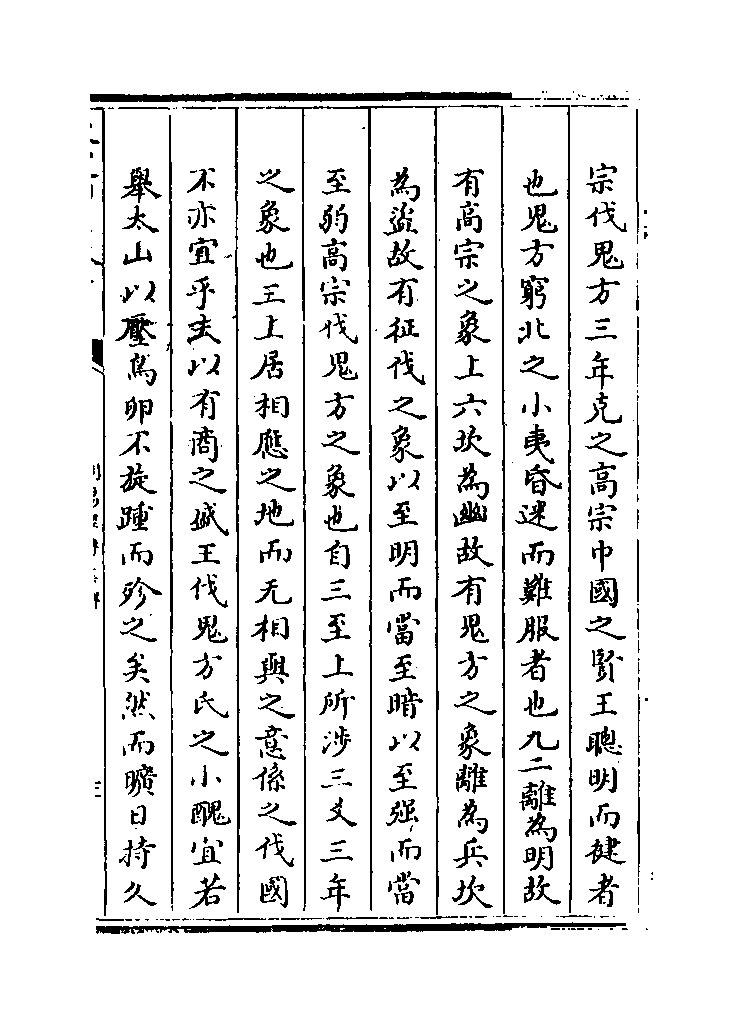 宗伐鬼方三年克之高宗中國之賢王聰明而健者
也鬼方窮北之小夷昏迷而難服者也九二離為明故
有高宗之象上六坎為幽故有鬼方之象離為兵坎
為盜故有征伐之象以至明而當至暗以至强而當
至弱高宗伐鬼方之象也自三至上所涉三爻三年
之象也三上居相應之地而无相與之意係之伐國
不亦宜乎夫以有商之盛王伐鬼方氏之小醜宜若
舉太山以壓鳥卵不旋踵而殄之矣然而曠日持久